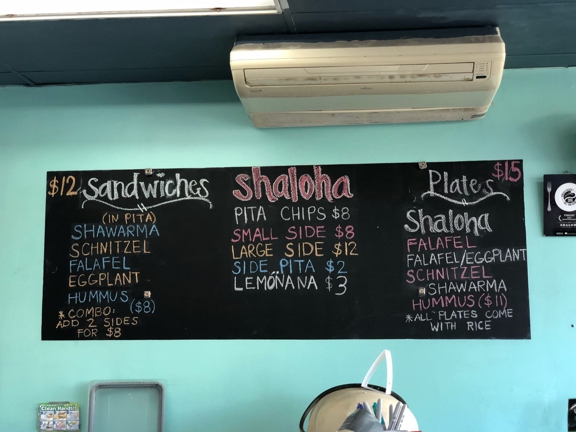 $12 Sandwiches
(IN PITA)
SHAWARMA
SCHNITZEL
FALAFEL
EGGPLANT
HUMMUS ($8)
*COMBO:
ADD 2 SIDES
FOR $8
shaloha
PITA CHIPS $8
SMALL SIDE $8
LARGE SIDE $12
SIDE PITA $2
LEMONANA $3
Plates $15
Shaloha
FALAFEL
FALAFEL/EGGPLANT
SCHNITZEL
SHAWARMA
HUMMUS ($11)
*ALL PLATES COME
WITH RICE
Clean Hands